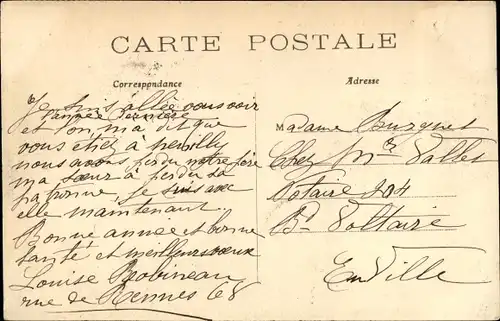 CARTE POSTALE
Correspondance
Adresse
Je suis allée vous voir
l'année dernière
et l'on m'a dit que
vous étiez à
nous avons perdu notre père
ma sœur à perdu sa
patronne, je suis avec
elle maintenant
Bonne année et bonne
santé et meilleurs vœux
Louise Robineau
rue de Rennes 68
Madame Burguet
Chez Mr Vallet
Notaire 204
Bd Voltaire
En Ville